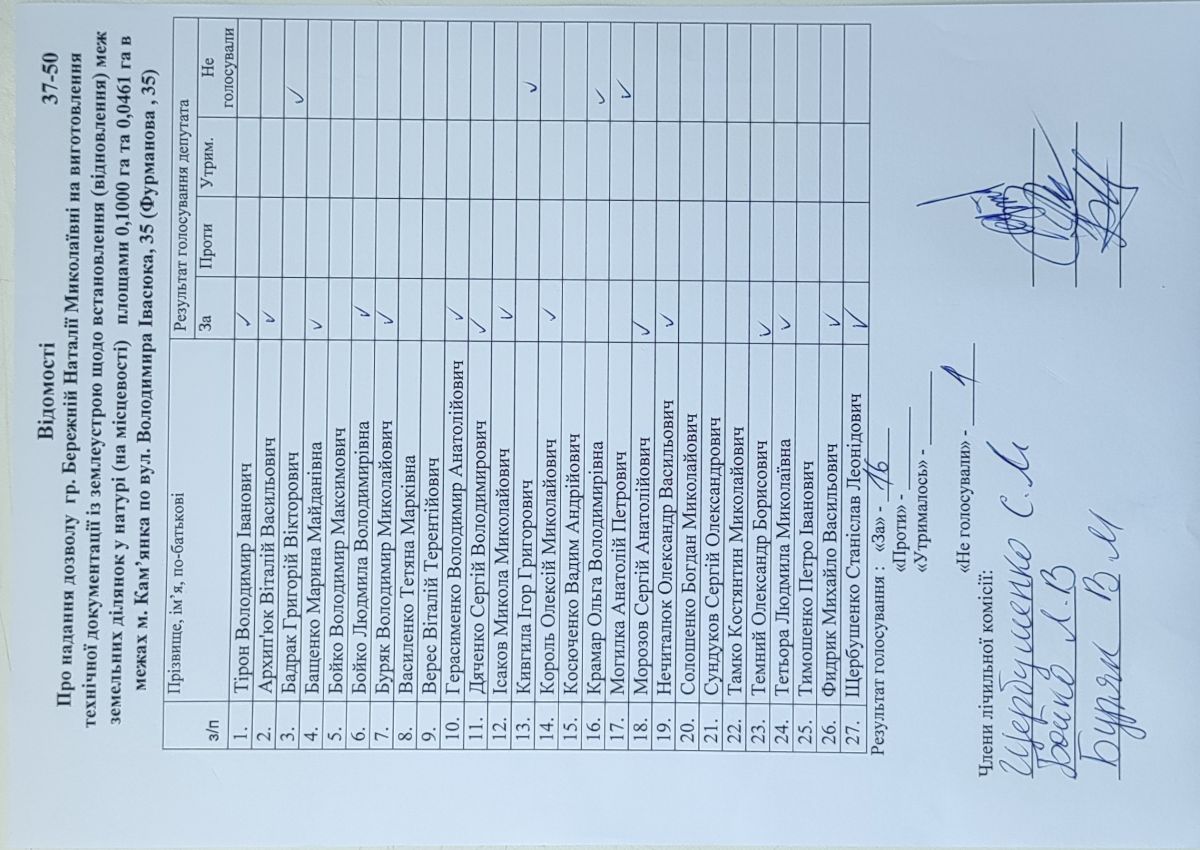 Відомості
37-50
Про надання дозволу гр. Бережній Наталії Миколаївні на виготовлення
технічної документації із землеустрою щодо встановлення (відновлення) меж
земельних ділянок у натурі (на місцевості) площами 0,1000 га та 0,0461 га в
межах м. Кам’янка по вул. Володимира Івасюка, 35 (Фурманова , 35)
з/п Прізвище, ім’я, по-батькові Результат голосування депутата
За Проти Утрим. Не голосували
1. Тірон Володимир Іванович ✓
2. Архип'юк Віталій Васильович ✓
3. Бадрак Григорій Вікторович ✓
4. Бащенко Марина Майданівна ✓
5. Бойко Володимир Максимович
6. Бойко Людмила Володимирівна ✓
7. Буряк Володимир Миколайович ✓
8. Василенко Тетяна Марківна
9. Верес Віталій Терентійович
10. Герасименко Володимир Анатолійович ✓
11. Дяченко Сергій Володимирович ✓
12. Ісаков Микола Миколайович ✓
13. Кивгила Ігор Григорович ✓
14. Король Олексій Миколайович ✓
15. Косюченко Вадим Андрійович
16. Крамар Ольга Володимирівна ✓
17. Могилка Анатолій Петрович ✓
18. Морозов Сергій Анатолійович ✓
19. Нечиталюк Олександр Васильович ✓
20. Солошенко Богдан Миколайович
21. Сундуков Сергій Олександрович
22. Тамко Костянтин Миколайович
23. Темний Олександр Борисович ✓
24. Тетьора Людмила Миколаївна ✓
25. Тимошенко Петро Іванович
26. Фидрик Михайло Васильович ✓
27. Щербушенко Станіслав Леонідович ✓
Результат голосування : «За» - 16
«Проти» -
«Утрималось» -
«Не голосували» - 1
Члени лічильної комісії:
Щербушенко С.
Бойко Л.В
Буряк В М